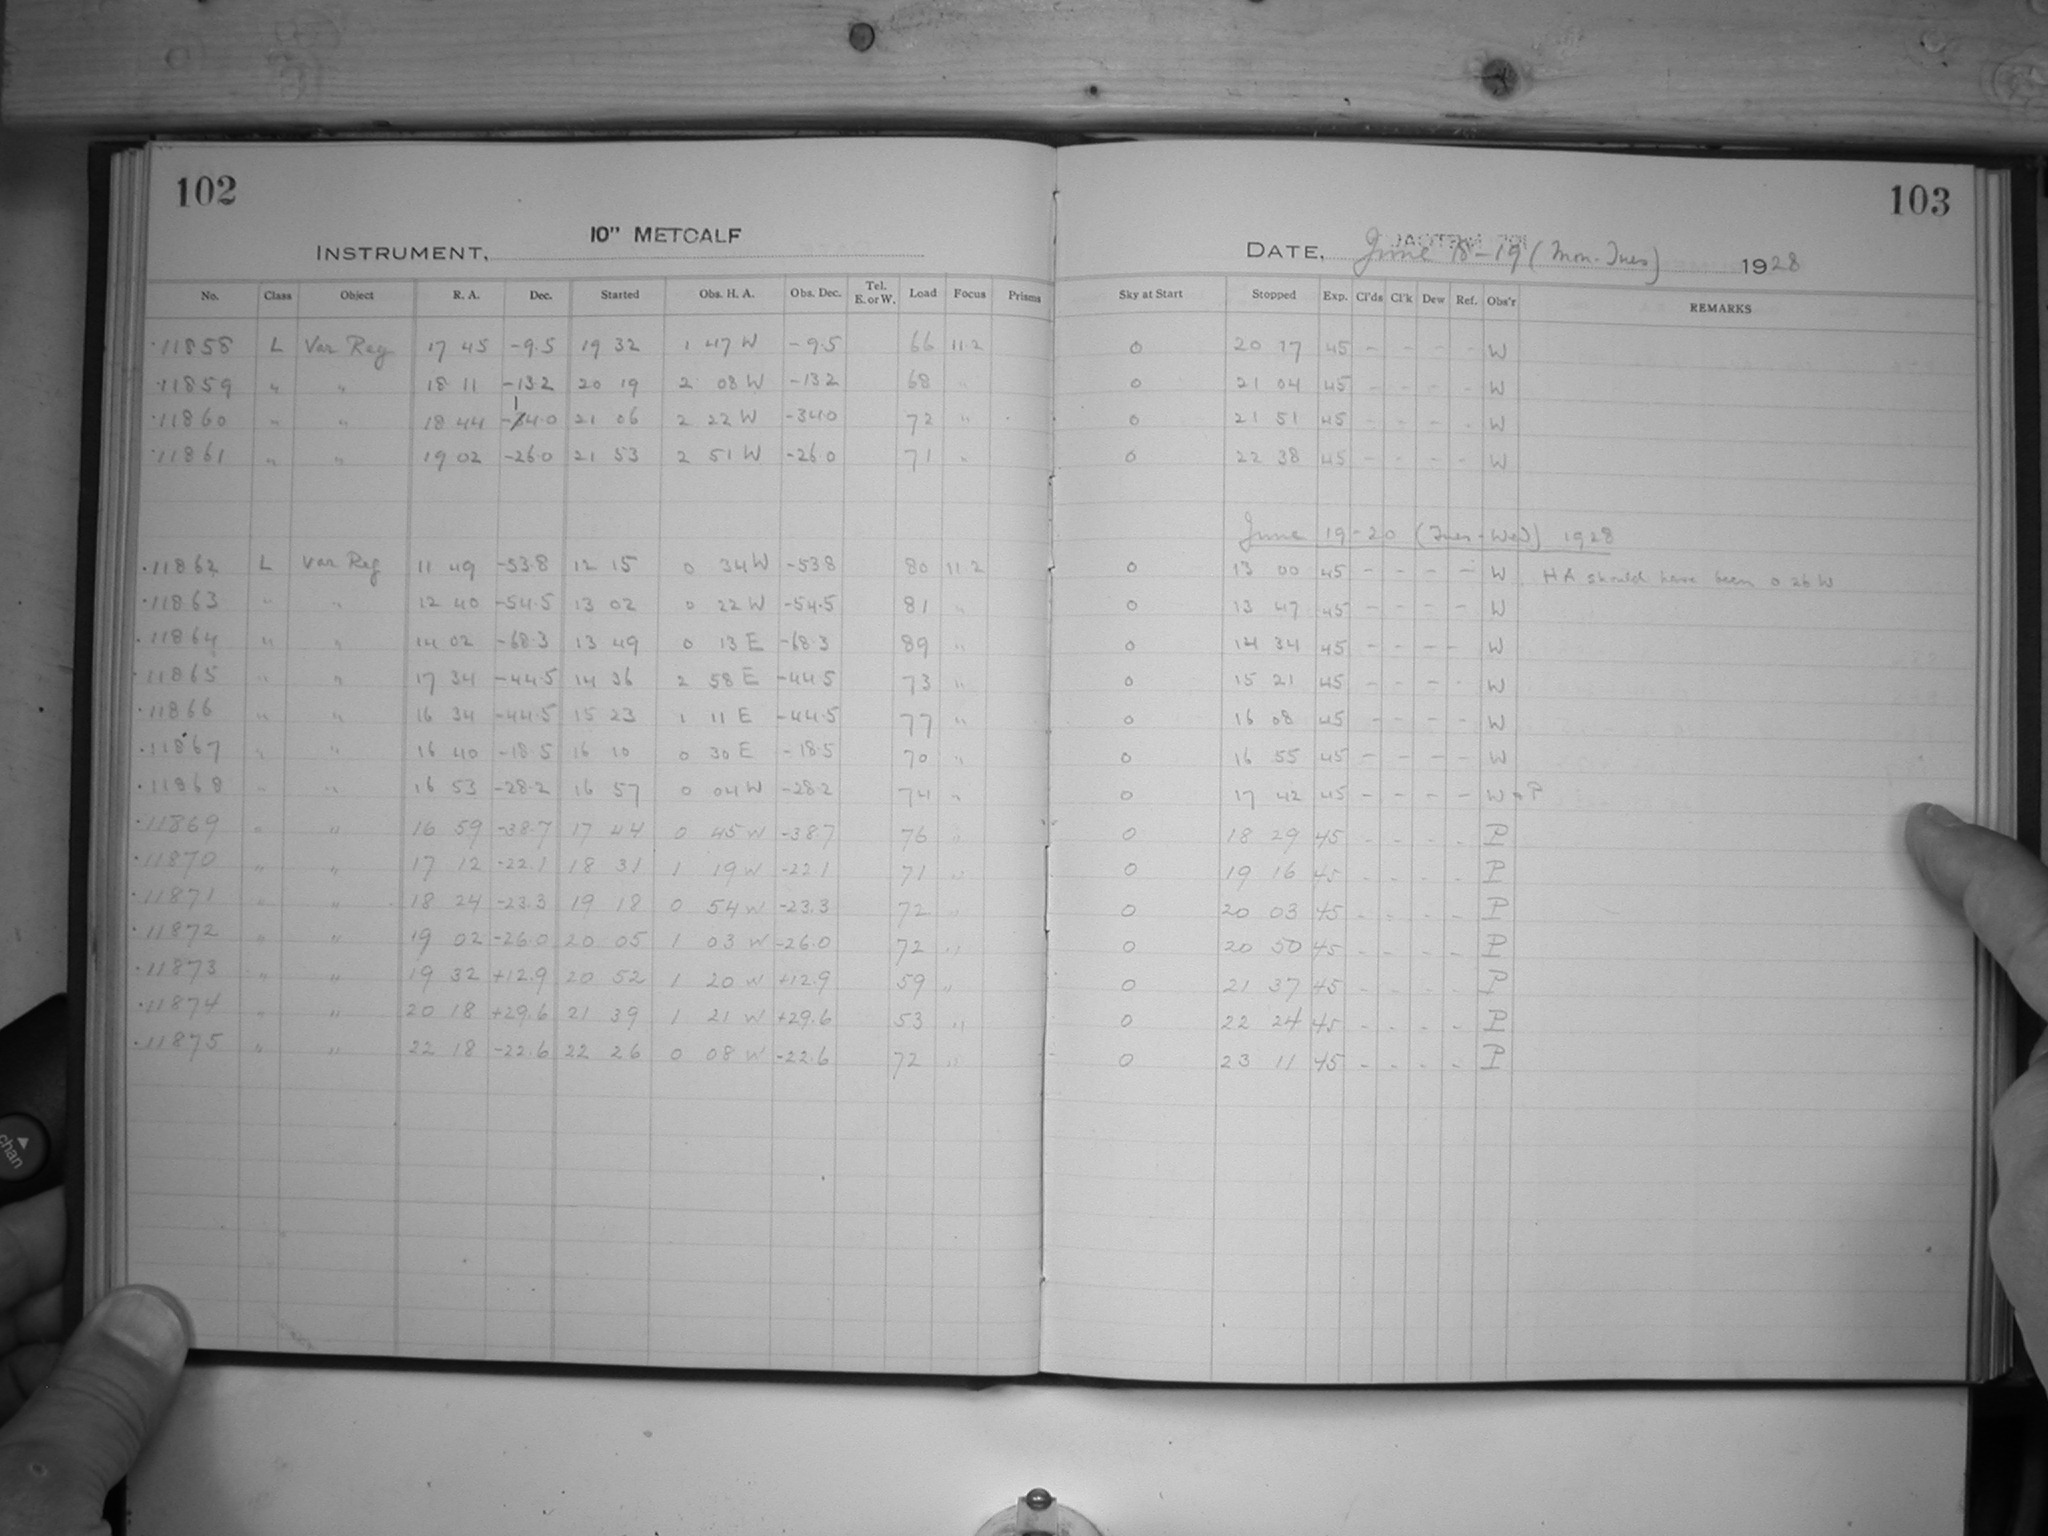 102
103
10" METCALF
INSTRUMENT,
DATE, June 18-19 (Mon-Tues) 1928
No. Class Object R. A. Dec. Started Obs. H. A. Obs. Dec. Tel. E. or W. Load Focus Prisms Sky at Start Stopped Exp. Cl'ds Cl'k Dew Ref. Obs'r REMARKS
11858 L Var Reg 17 45 -9.5 19 32 1 47 W -9.5 66 11.2 0 20 17 45 - - - - W
11859 " " 18 11 -13.2 20 19 2 08 W -13.2 68 " 0 21 04 45 - - - - W
11860 " " 18 44 -14.0 21 06 2 22 W -34.0 72 " 0 21 51 45 - - - - W
11861 " " 19 02 -26.0 21 53 2 51 W -26.0 71 " 0 22 38 45 - - - - W
June 19-20 (Tues-Wed) 1928
11862 L Var Reg 11 49 -53.8 12 15 0 34 W -53.8 80 11.2 0 13 00 45 - - - - W HA should have been 0 26 W
11863 " " 12 40 -54.5 13 02 0 22 W -54.5 81 " 0 13 47 45 - - - - W
11864 " " 14 02 -68.3 13 49 0 13 E -68.3 89 " 0 14 34 45 - - - - W
11865 " " 17 34 -44.5 14 36 2 58 E -44.5 73 " 0 15 21 45 - - - - W
11866 " " 16 34 -44.5 15 23 1 11 E -44.5 77 " 0 16 08 45 - - - - W
11867 " " 16 40 -18.5 16 10 0 30 E -18.5 70 " 0 16 55 45 - - - - W
11868 " " 16 53 -28.2 16 57 0 04 W -28.2 74 " 0 17 42 45 - - - - W + P
11869 " " 16 59 -38.7 17 44 0 45 W -38.7 76 " 0 18 29 45 - - - - P
11870 " " 17 12 -22.1 18 31 1 19 W -22.1 71 " 0 19 16 45 - - - - P
11871 " " 18 24 -23.3 19 18 0 54 W -23.3 72 " 0 20 03 45 - - - - P
11872 " " 19 02 -26.0 20 05 1 03 W -26.0 72 " 0 20 50 45 - - - - P
11873 " " 19 32 +12.9 20 52 1 20 W +12.9 59 " 0 21 37 45 - - - - P
11874 " " 20 18 +29.6 21 39 1 21 W +29.6 53 " 0 22 24 45 - - - - P
11875 " " 22 18 -22.6 22 26 0 08 W -22.6 72 " 0 23 11 45 - - - - P
chan